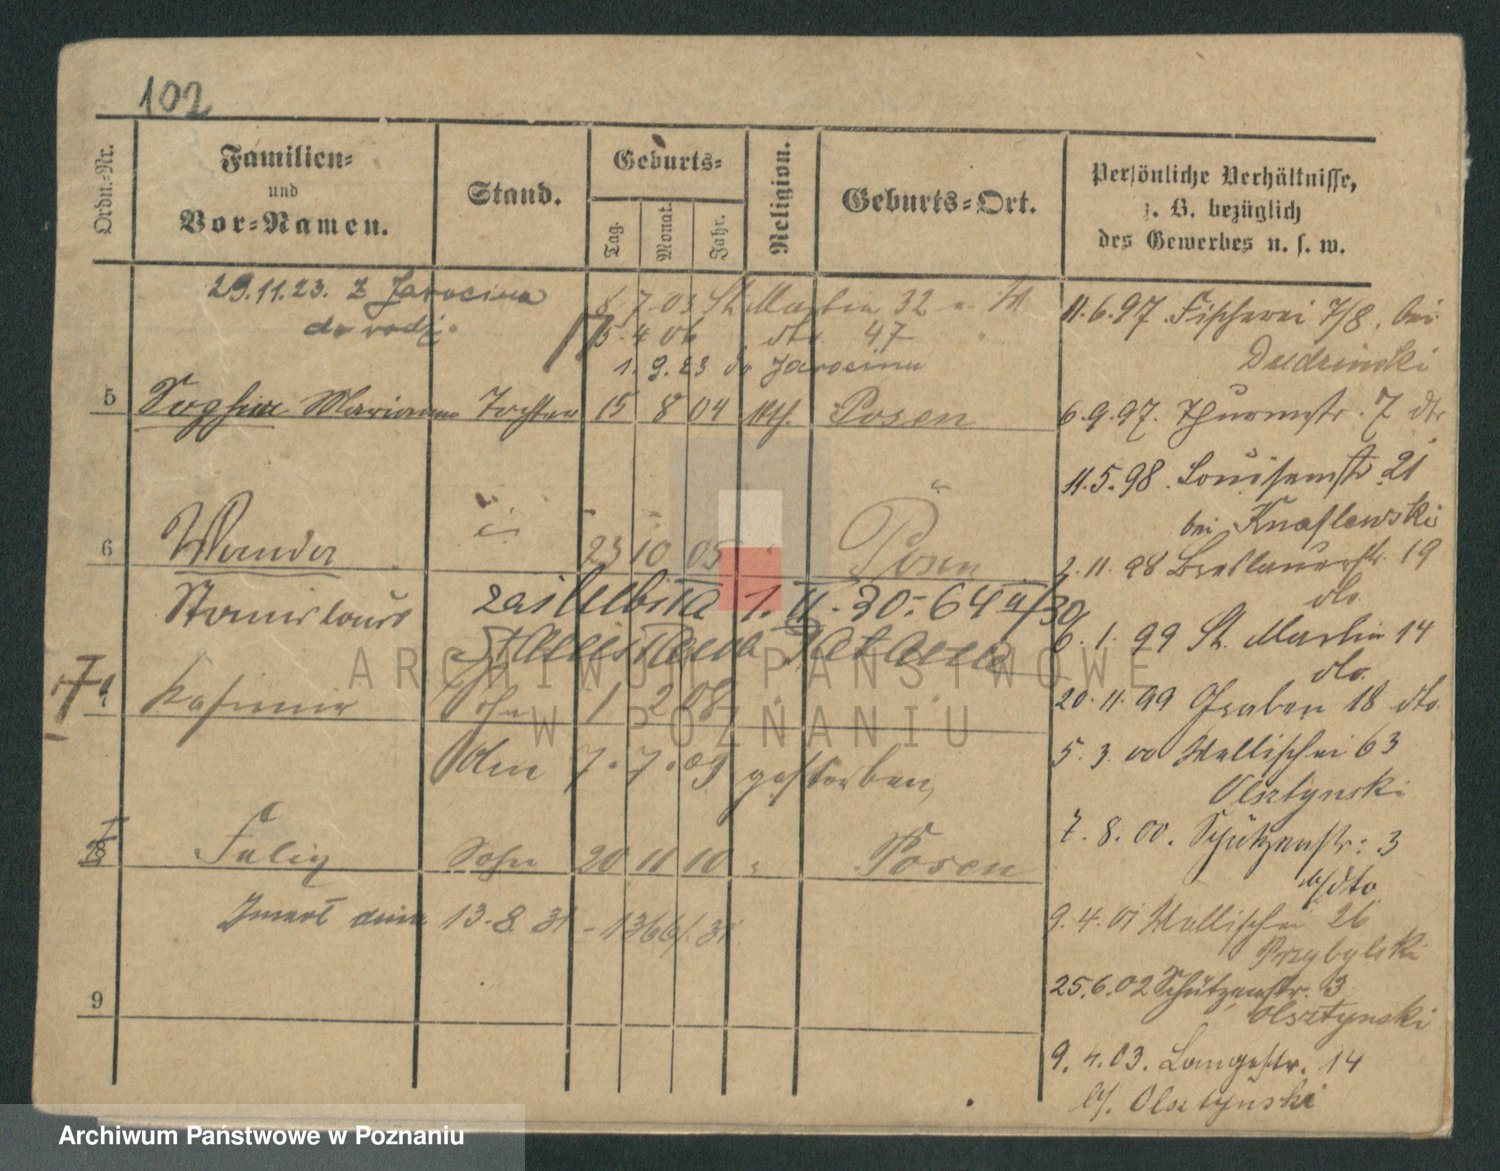 102
Ordn.-Nr.
Familien-
und
Vor-Namen.
Stand.
Geburts-
Tag.
Monat.
Jahr.
Religion.
Geburts-Ort.
Persönliche Verhältnisse,
z. B. bezüglich
des Gewerbes u. s. w.
29.11.23. z Jarocina
do rodz.
8. 7. 03 St. Martin 32
5. 4. 06 dto. 47
1. 9. 23 do Jarocina
5 Sophie Marianna Tochter 15 8 04 kth. Posen
6 Wanda 23 10 05 Posen
Stanislaus
1. II. 30
Kasimir Sohn 1 2 08
den 7. 7. 09 gestorben
8 Felix Sohn 20 11 10 Posen
Zmarł dnia 13. 8. 31 - 1366/31
9
11. 6. 97. Fischerei 7/8. bei
Dudzinski
6. 9. 97. Thurmstr. 7 dto
11. 5. 98. Louisenstr 21
bei Knaflewski
2. 11. 98 Breslauerstr. 19
dto.
6. 1. 99 St. Martin 14
dto.
20. 11. 99 Graben 18 dto.
5. 3. 00 Wallischei 63
Olsztynski
7. 8. 00. Schützenstr. 3
b/dto
9. 4. 01 Wallischei 26
Przybylski
25. 6. 02 Schützenstr. 3
Olsztynski
9. 4. 03. Langestr. 14
b/. Olsztynski
ARCHIWUM PAŃSTWOWE
W POZNANIU
Archiwum Państwowe w Poznaniu